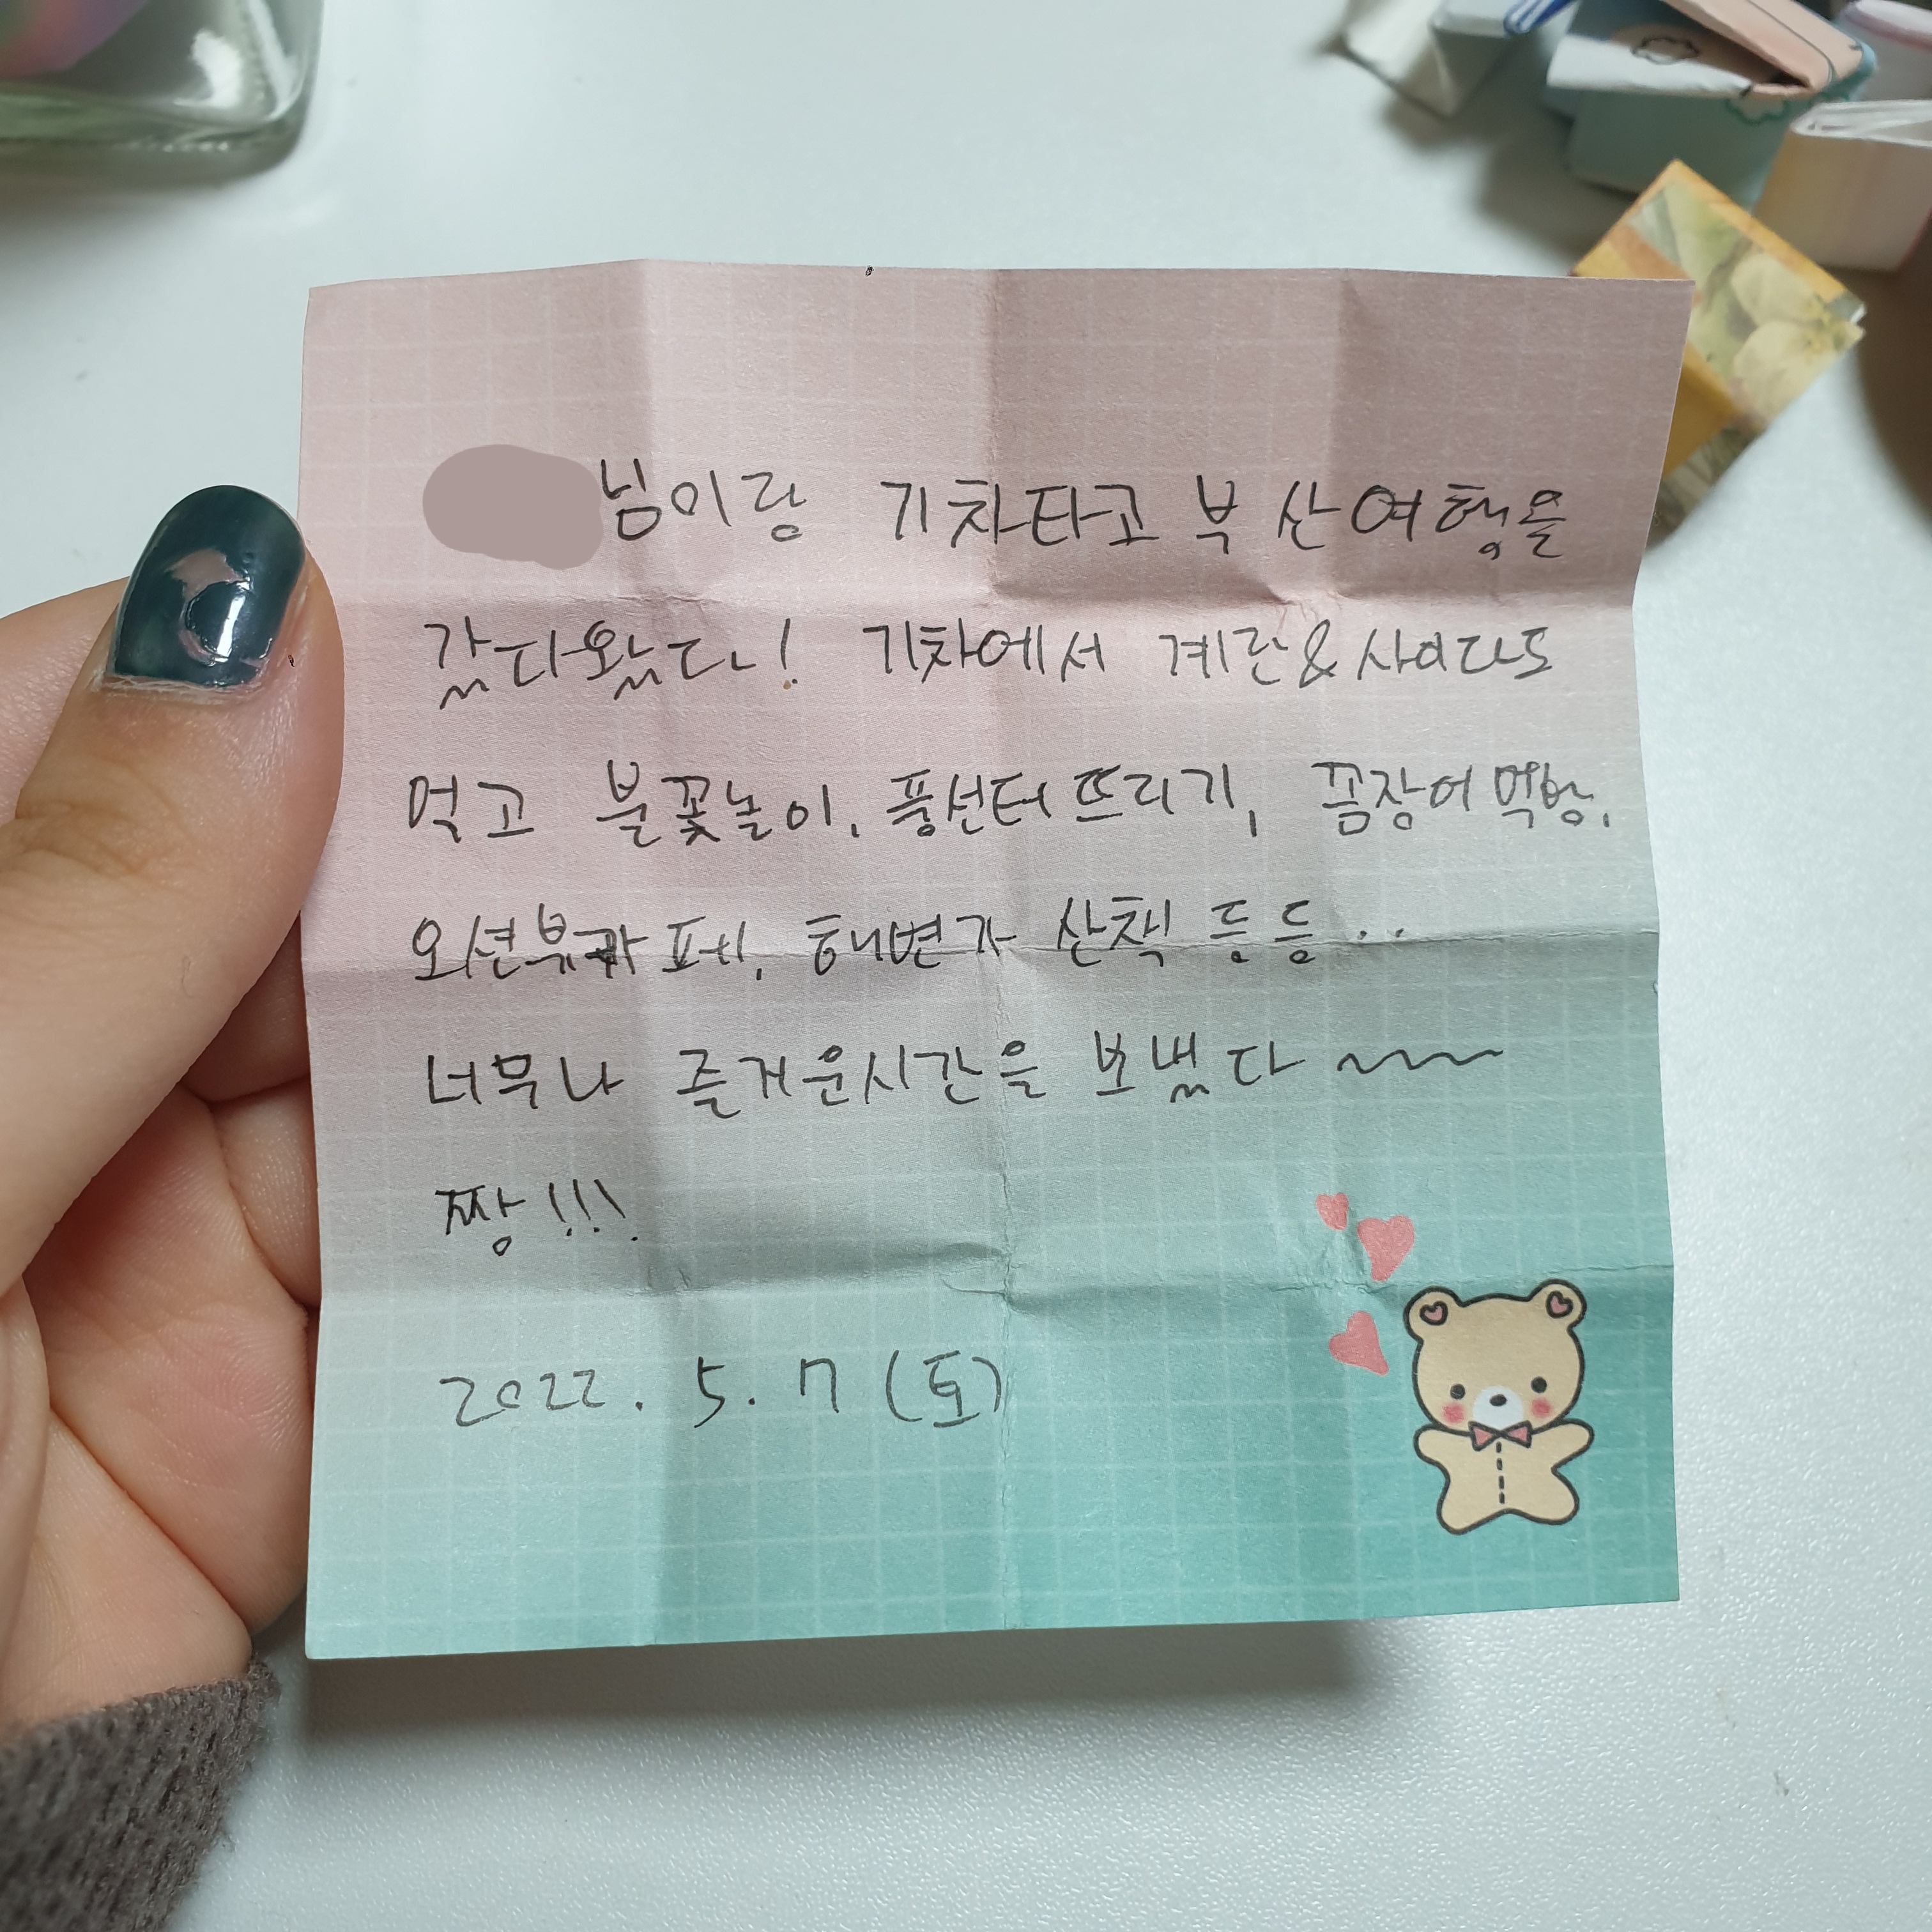 님이랑 기차타고 부산여행을
갔다왔다! 기차에서 계란&사이다도
먹고 불꽃놀이, 풍선터뜨리기, 꼼장어먹방,
오션뷰카페, 해변가 산책 등등..
너무나 즐거운시간을 보냈다~~~
짱!!!
2022. 5. 7 (토)